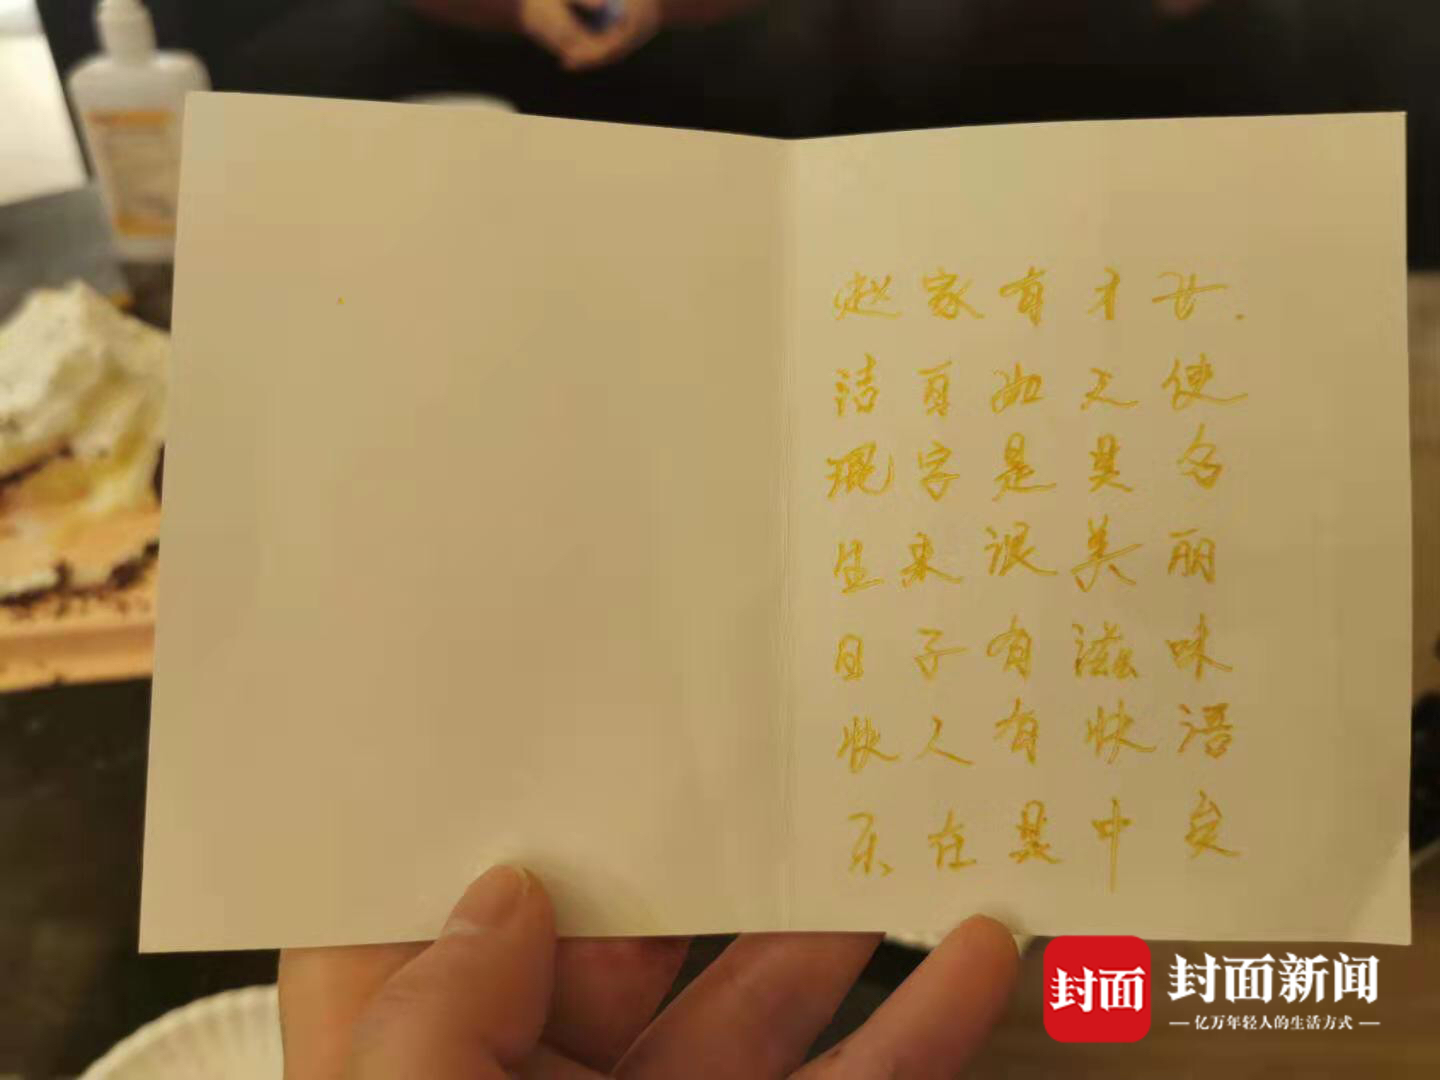 赵家有才女.
洁真如天使
琨字是其名
生来很美丽
日子有滋味
快人有快语
乐在其中矣
封面
封面新闻
亿万年轻人的生活方式